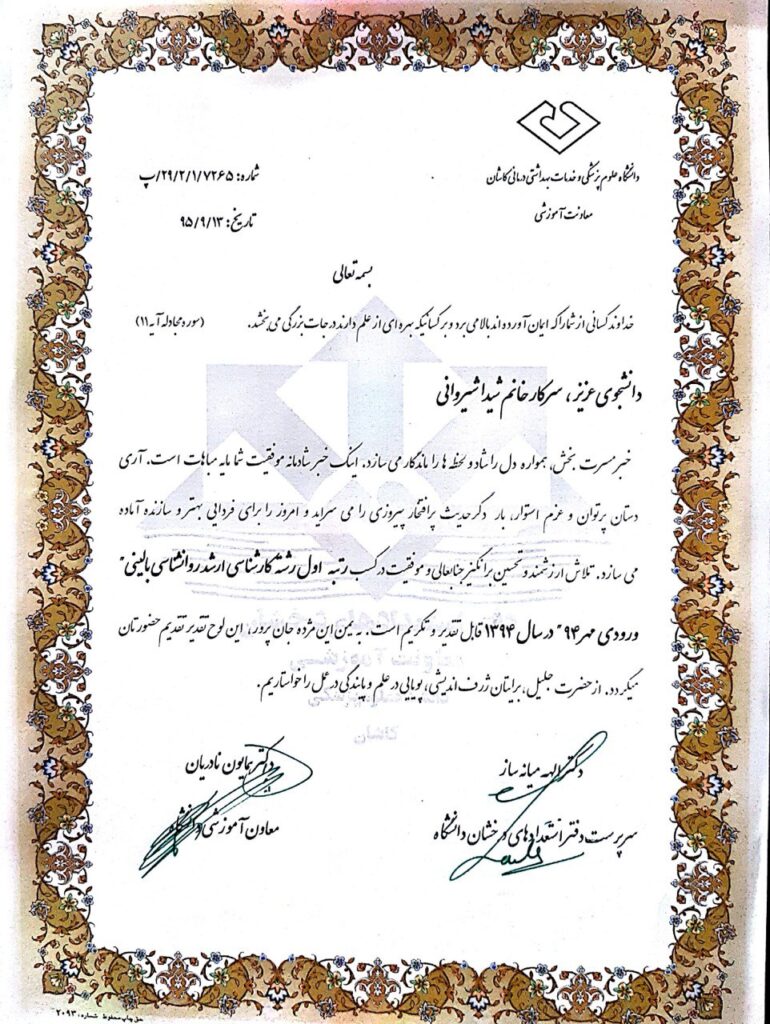 دانشگاه علوم پزشکی و خدمات بهداشتی درمانی کاشان
معاونت آموزشی
شماره: ۲۹/۲/۱/۷۲۶۵/پ
تاریخ: ۹۵/۹/۱۳
بسمه تعالی
خداوند کسانی از شما را که ایمان آورده اند بالا می برد و بر کسانیکه بهره ای از علم دارند درجات بزرگی می بخشد. (سوره مجادله آیه ۱۱)
دانشجوی عزیز ، سرکار خانم شیدا شیروانی
خبر مسرت بخش، همواره دل را شاد و لحظه ها را ماندگار می سازد. اینک خبر شادمانه موفقیت شما مایه مباهات است. آری
دستان پرتوان و عزم استوار، بار دگر حدیث پرافتخار پیروزی را می سراید و امروز را برای فردایی بهتر و سازنده آماده
می سازد. تلاش ارزشمند و تحسین برانگیز جنابعالی و موفقیت در کسب رتبه اول رشته کارشناسی ارشد روانشناسی بالینی"
ورودی مهر ۹۴" در سال ۱۳۹۴ قابل تقدیر و تکریم است. به یمن این مژده جان پرور، این لوح تقدیر تقدیم حضورتان
میگردد. از حضرت جلیل، برایتان ژرف اندیشی، پویایی در علم و پایندگی در عمل را خواستاریم.
دکتر الهه میانه ساز
سرپرست دفتر استعدادهای درخشان دانشگاه
دکتر همایون نادریان
معاون آموزشی دانشگاه
حق چاپ محفوظ شماره: ۲۰۹۳